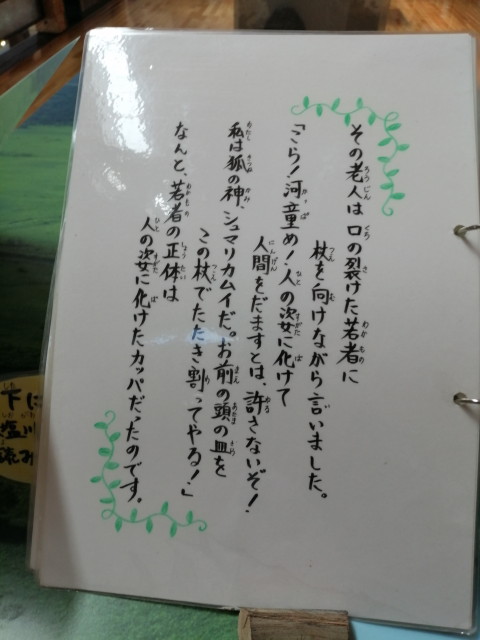 その老人は口の裂けた若者に
杖を向けながら言いました。
「こら!河童め!人の姿に化けて
人間をだますとは、許さないぞ!
私は狐の神、シュマリカムイだ。お前の頭の皿を
この杖でたたき割ってやる!」
なんと、若者の正体は
人の姿に化けたカッパだったのです。
下に
塩川
読み